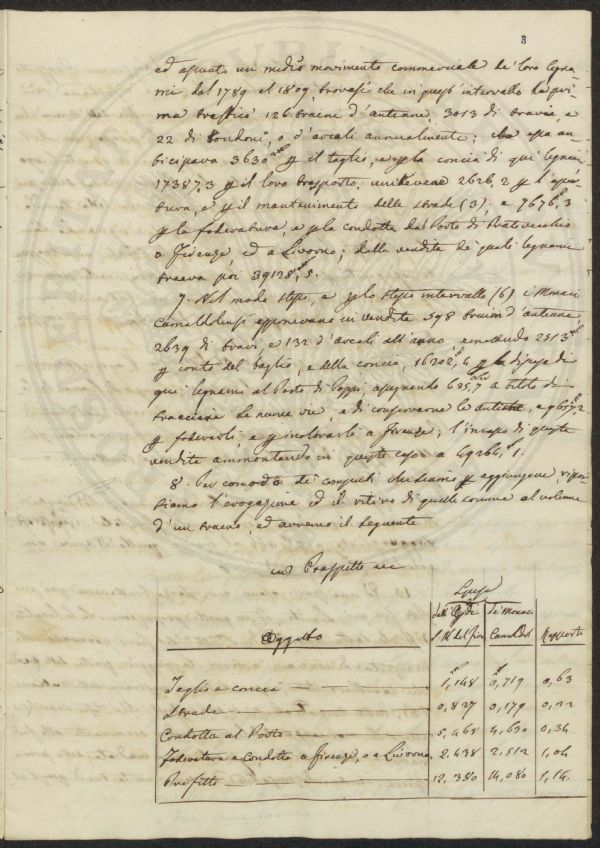 3
ed assunto un medio movimento commerciale de' loro legna-
mi dal 1789 al 1809, trovasi che in quest'intervallo la pri-
ma traffico 126 traini d'antenne, 3013 di travi, e
22 di tondoni, o d'avcali annualmente; che essa an-
ticipava 3630 p il taglio, e p la concia di qui legnami
17387,3 p il loro trasporto, 2626,2 p l'aper-
tura, e p il mantenimento delle strade (3). e 7676,3
p la foderatura, e p la condotta dal Porto di Pratovecchio
a Firenze, ed a Livorno; dalla vendita de' quali legnami
traeva poi 39128,5.
7. Nel modo stesso, e p lo stesso intervallo (6) i Monaci
Camaldolensi esponevano in vendita 598 traini d'antenne
2639 di travi, e 132 d'avcali all'anno, 2513
p conto del taglio, e della concia, 16202,4 p la discesa di
qui legnami al Porto di Poppi, 625,7 a titolo di
tracciare le nuove vie, e di conservarne le antiche, e 9657,2
p foderarli, e p inoltrarli a Firenze; l'incasso di queste
vendite ammontando in questo caso a 49264,1.
8. Per comodo dei computi che siamo p aggiungere, ripor-
tiamo l'erogazione ed il ritiro di quelle somme al volume
d'un traino, ed avremo il seguente
Prospetto
Spese
dell' de' Monaci
Oggetto S. M. del fior Camald Rapporto
Taglio e concia 1,148 0,719 0,63
Strade 0,827 0,179 0,22
Condotta al Porto 5,465 4,630 0,34
Foderatura e Condotta a Firenze, o a Livorno 2,438 2,512 1,04
Profitto 12,380 14,080 1,14